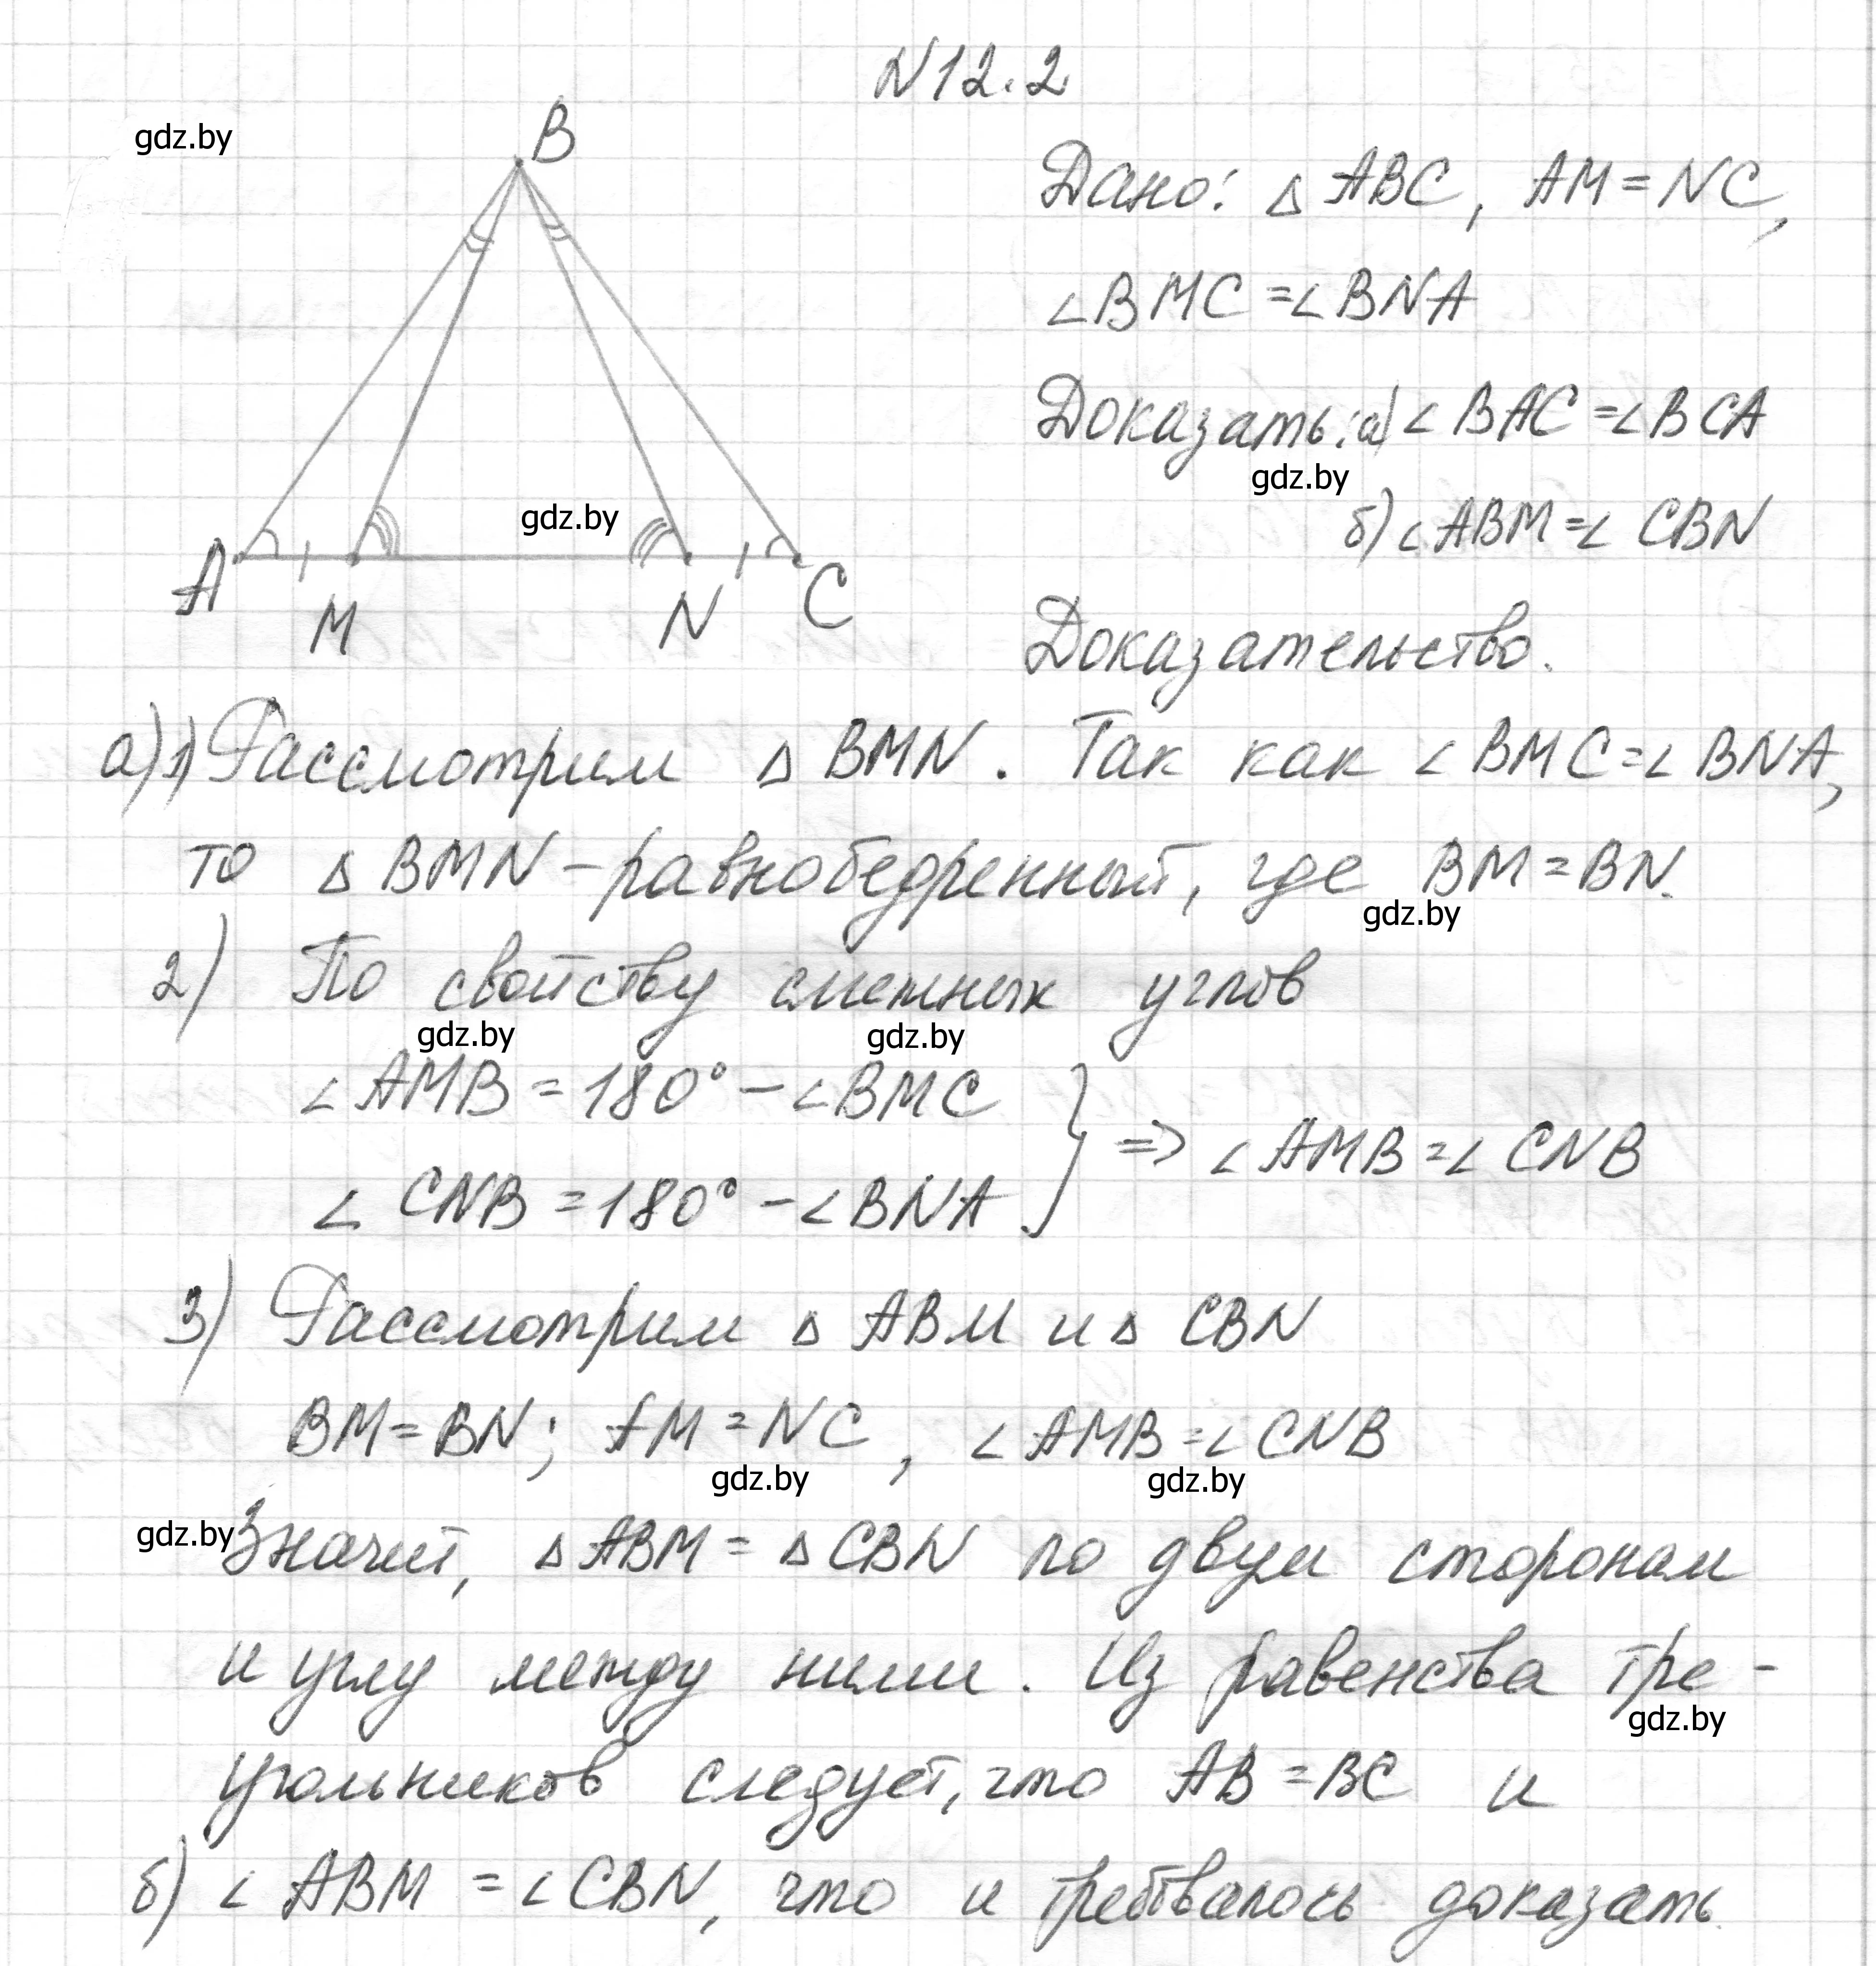 N12.2
gdz.by
B
Дано: △ ABC, AM = NC,
∠BMC = ∠BNA
Доказать: а) ∠BAC = ∠BCA
gdz.by
б) ∠ABM = ∠CBN
gdz.by
A M N C
Доказательство.
а) 1) Рассмотрим △ BMN. Так как ∠BMC = ∠BNA,
то △ BMN – равнобедренный, где BM = BN.
gdz.by
2) По свойству смежных углов
gdz.by gdz.by
∠AMB = 180° – ∠BMC
∠CNB = 180° – ∠BNA } => ∠AMB = ∠CNB
3) Рассмотрим △ ABM и △ CBN
BM = BN; AM = NC, ∠AMB = ∠CNB
gdz.by gdz.by
gdz.by
Значит, △ABM = △CBN по двум сторонам
и углу между ними. Из равенства тре-
gdz.by
угольников следует, что AB = BC и
б) ∠ABM = ∠CBN, что и требовалось доказать.